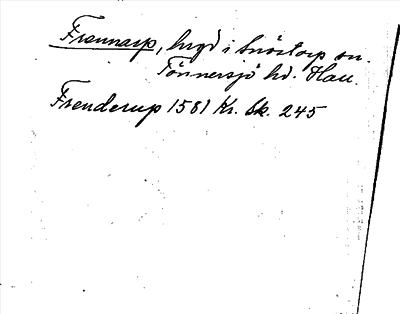 Frennarp, bygd i Snöstorp sn.
Tönnersjö hd. Hall.
Frenderup 1581 Kr. Sk. 245